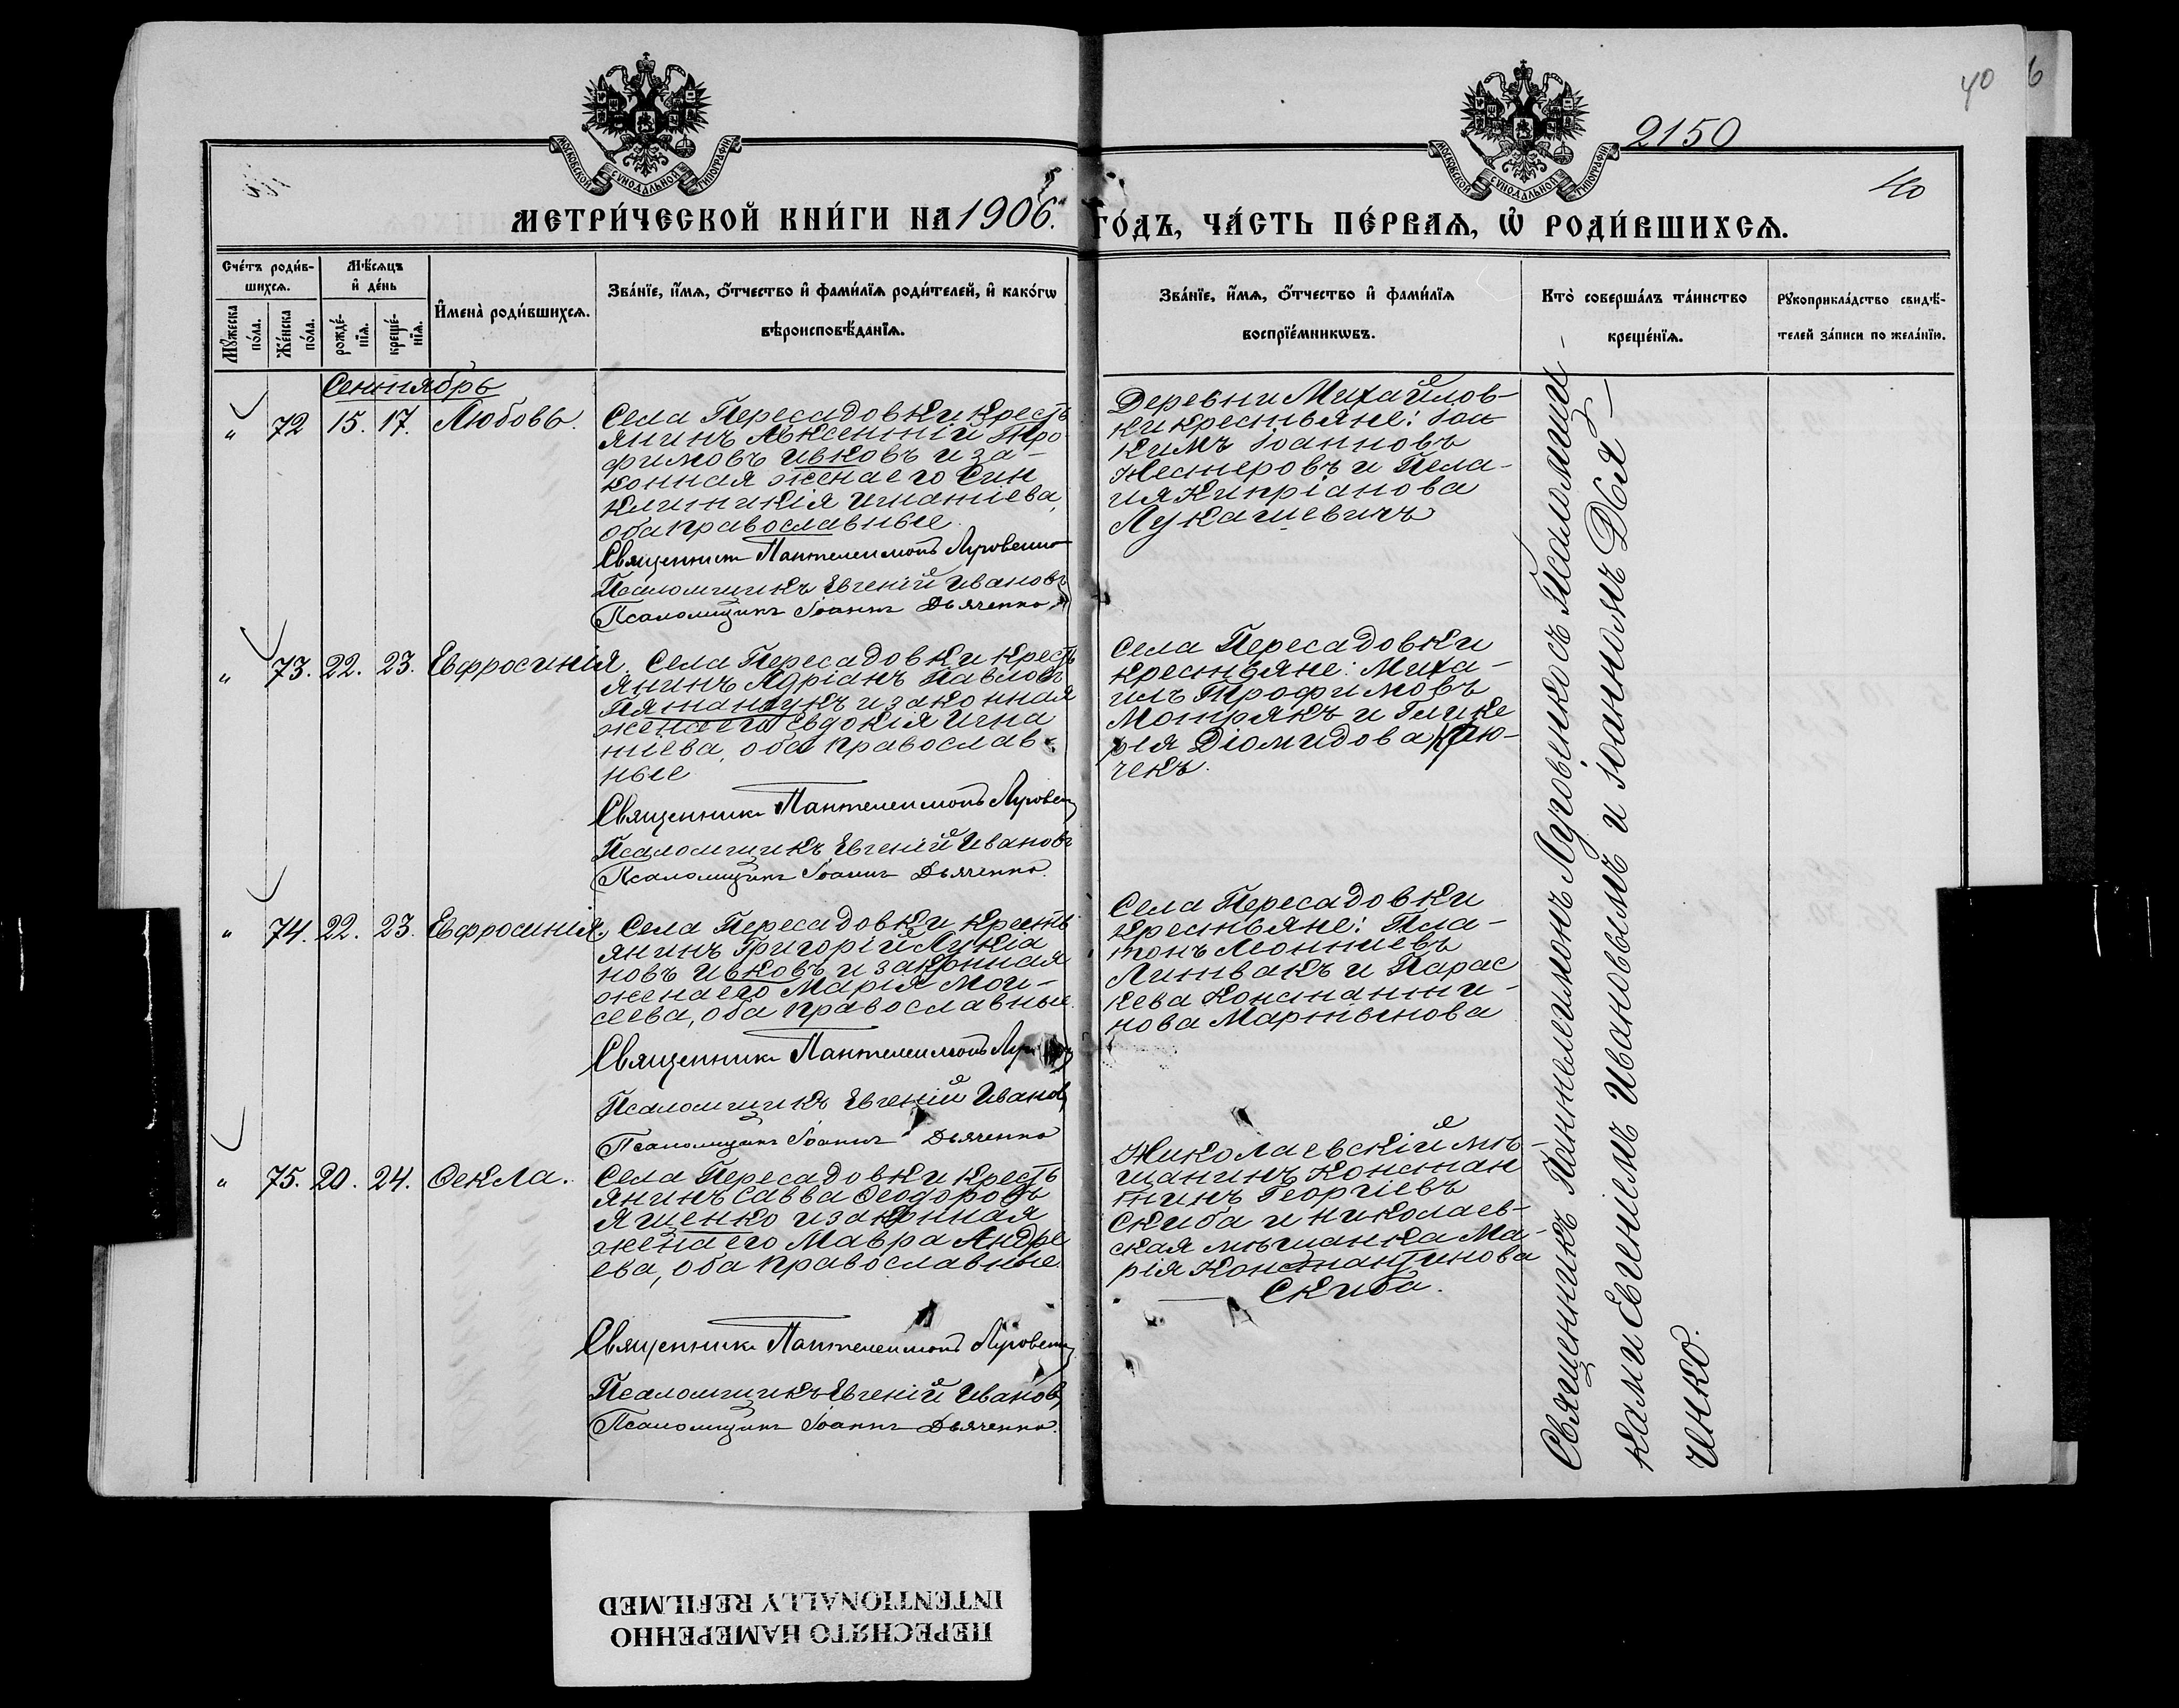 40
6
2150
40
МОСКОВСКОЙ СѴНОДАЛЬНОЙ ТИПОГРАФІИ
МОСКОВСКОЙ СѴНОДАЛЬНОЙ ТИПОГРАФІИ
МЕТРИ́ЧЕСКОЙ КНИ́ГИ НА 1906. ГО́ДЪ, ЧА́СТЬ ПЕ́РВАѦ, Ѡ҆ РОДИ́ВШИХСѦ.
Сче́тъ роди́в-
шихсѧ.
Мꙋ́жеска по́ла.
Же́нска по́ла.
Мѣ́сѧцъ
и҆ де́нь
рожде́-
нїѧ.
креще́-
нїѧ.
И҆мена̀ роди́вшихсѧ.
Зва́нїе, и҆́мѧ, ѻ҆́тчество и҆ фами́лїѧ роди́телей, и҆ како́гѡ
вѣроисповѣ́данїѧ.
Зва́нїе, и҆́мѧ, ѻ҆́тчество и҆ фами́лїѧ
воспрїе́мникѡвъ.
Кто̀ соверша́лъ та́инство
креще́нїѧ.
Рꙋкоприкла́дство свидѣ́-
телей за́писи по жела́нїю.
Сентябрь
" 72 15. 17. Любовь.
Села Пересадовки кресть
янинъ Авксентій Тро
фимовъ Ивковъ и за-
конная жена его Син
клитикія Игнатіева,
оба православные.
Священник Пантелеимонъ Луговенко
Псаломщикъ Евгеній Ивановъ
Псаломщикъ Іоаннъ Дьяченко
Деревни Михайлов-
ки крестьяне: Іоа
кимъ Іоанновъ
Нестеровъ и Пела-
гия Кипріанова
Лукашевичъ
" 73. 22. 23. Евфросинія.
Села Пересадовки кресть
янинъ Адріанъ Павловъ
и законная
жена его Евдокія Игна
тіева, оба православ-
ные
Священникъ Пантелеимонъ Луговен
Псаломщикъ Евгеній Ивановъ
Псаломщикъ Іоаннъ Дьяченко.
Села Пересадовки
крестьяне: Миха-
илъ Трофимовъ
Мотрякъ и Глике
рія Діомидова Крю-
чекъ.
" 74. 22. 23. Евфросинія.
Села Пересадовки кресть
янинъ Григорій Лукіа
новъ Ивковъ и законная
жена его Марія Мои-
сеева, оба православные.
Священникъ Пантелеимонъ
Псаломщикъ Евгеній Ивановъ
Псаломщикъ Іоаннъ Дьяченко
Села Пересадовки
крестьяне: Пла-
тонъ Леонтиевъ
Литвакъ и Парас
кева Константи-
нова Мартынова
" 75. 20. 24. Ѳекла.
Села Пересадовки кресть
янинъ Савва Ѳеодоровъ
Ященко и законная
жена его Мавра Андре
ева, оба православные.
Священникъ Пантелеимонъ Луговенко
Псаломщикъ Евгеній Ивановъ
Псаломщикъ Іоаннъ Дьяченко.
Николаевскій мѣ-
щанинъ Констан
тинъ Георгіевъ
Скиба и николаев-
ская мѣщанка Ма-
рія Константинова
Скиба.
Священникъ Пантелеимонъ Луговенко съ Псаломщи-
ками Евгеніемъ Ивановымъ и Іоанномъ Дья-
ченко.
ПЕРЕСНЯТО НАМЕРЕННО
INTENTIONALLY REFILMED